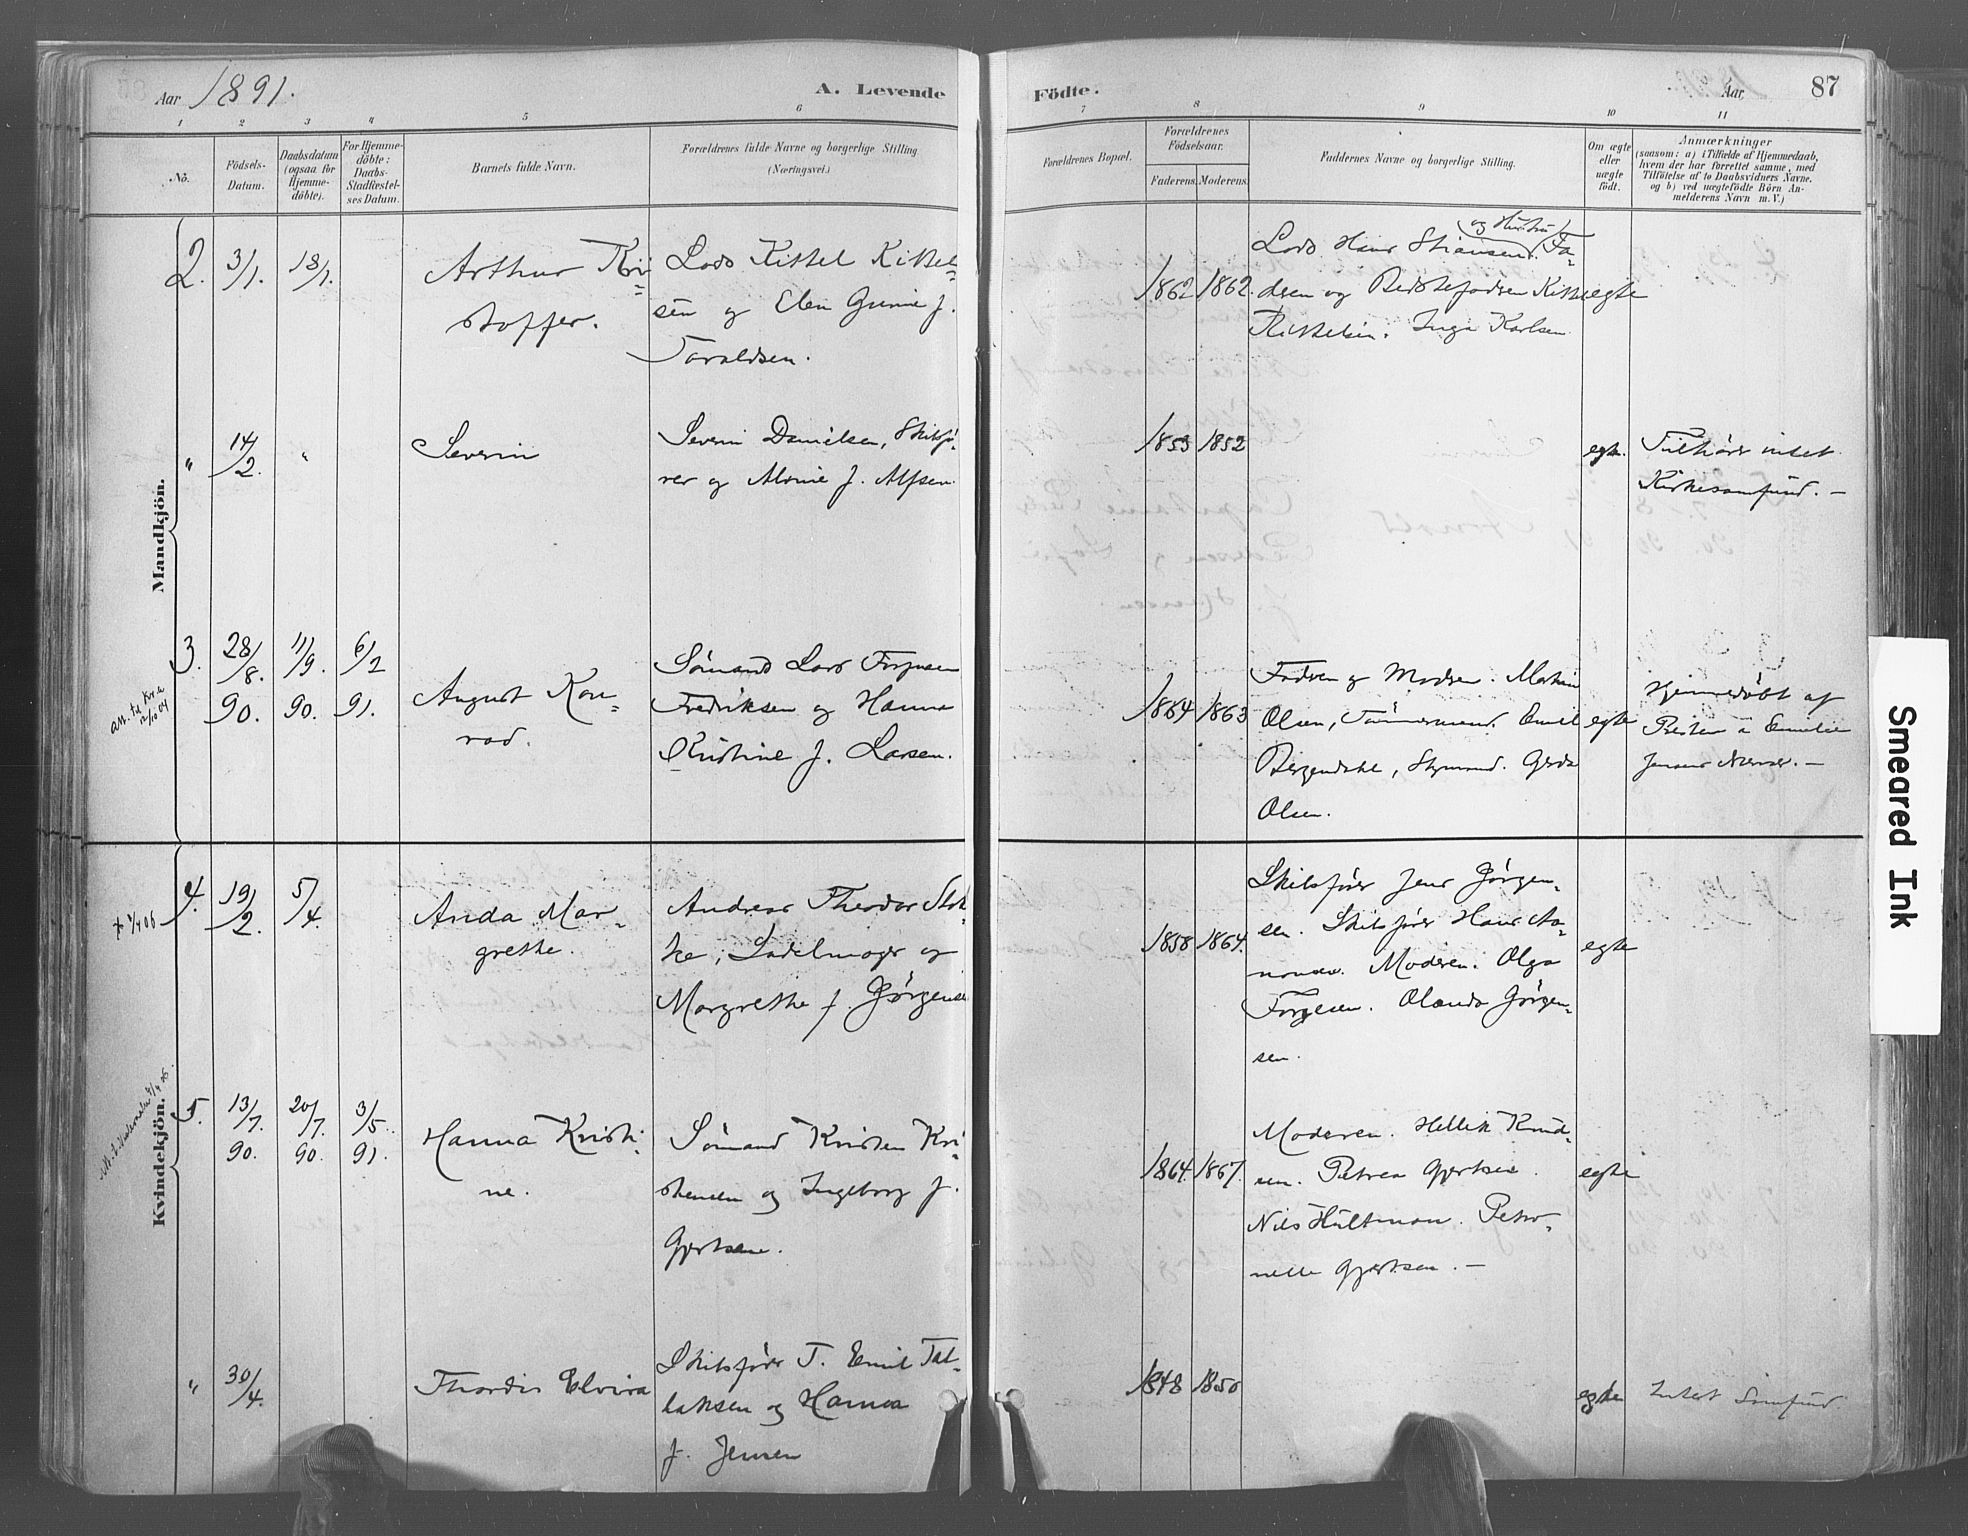 Aar 1891.
A. Levende
Födte.
Aar
87
1
2
3
4
5
6
7
8
9
10
11
No.
Födsels-
Datum.
Daabsdatum
(ogsaa for
Hjemme-
döbte).
For Hjemme-
döbte:
Daabs-
Stadfæstel-
ses Datum.
Barnets fulde Navn.
Forældrenes fulde Navne og borgerlige Stilling
(Næringsvei.)
Forældrenes Bopæl.
Forældrenes
Födselsaar.
Faderens. Moderens.
Faddernes Navne og borgerlige Stilling.
Om ægte
eller
uægte
födt.
Anmærkninger
(saasom: a) i Tilfælde af Hjemmedaab,
hvem der har forrettet samme, med
Tilföielse af to Daabsvidners Navne.
og b) ved uægtefödte Börn An-
melderens Navn m. V.)
Mandkjön.
2. 3/1. 18/1.
Arthur Kri=
stoffer.
Lods Kittel Kittel=
sen og Elen Gunie f.
Taraldsen.
1862 1862.
og Hustru
Lods Hans Stiansen. Fa=
deren og Bedstefaderen Kittel
Kittelsen. Inga Karlsen
egte
" 14/2. "
Severin
Severin Danielsen, Skibsfø=
rer og Alvine f. Alfsen.
1853 1852
egte.
Tilhører intet
Kirkesamfund. —
3. 28/8. 90. 11/9. 90. 6/2 91.
August Kon=
rad.
Sømand Lars
Fredriksen og Hanna
Kristine f. Larsen.
1864 1863
Fadren og Modren. Martin
Olsen, Tømmermand. Emil
Bergendahl, Styrmand. Gerda
Olsen.
egte
Hjemmedøbt af
Presten
Kvindekjön.
4. 19/2. 5/4.
Anda Mar=
grethe.
Andreas Theodor Stok=
ke, Sadelmager og
Margrethe f. Jørgensen
1858 1864.
Skibsfører Jens Jørgen=
sen. Skibsfører Hans Aa=
nonsen. Moderen. Olga
Torgesen. Olanda Jørgen=
sen.
egte
5. 13/7. 90. 20/7. 90. 3/5. 91.
Hanna Kristi=
ne.
Sømand Kristen Kri=
stensen og Ingeborg f.
Gjertsen.
1864. 1867.
Moderen. Hellik Knud=
sen. Petrea Gjertsen.
Nils Hultman. Petro=
nelle Gjertsen. —
egte
" 30/4.
Thordis Elvira
Skibsfører T. Emil Tal=
laksen og Hanna
f. Jensen
1848 1850
egte
Intet Samfund
Smeared Ink